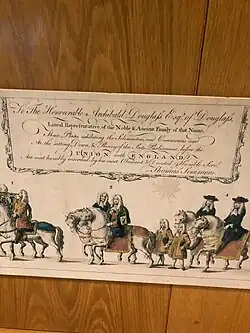 To The Honourable Archibald Douglass Esqr. of Douglass,
Lineal Representative, of the Noble & Ancient Family of that Name,
These Plates exhibiting the Solemnities and Ceremonies used
At the sitting Down, & Rising of the Scots Parliament before the
UNION with ENGLAND
Are most humbly inscribed by his most
Thomas Sommers